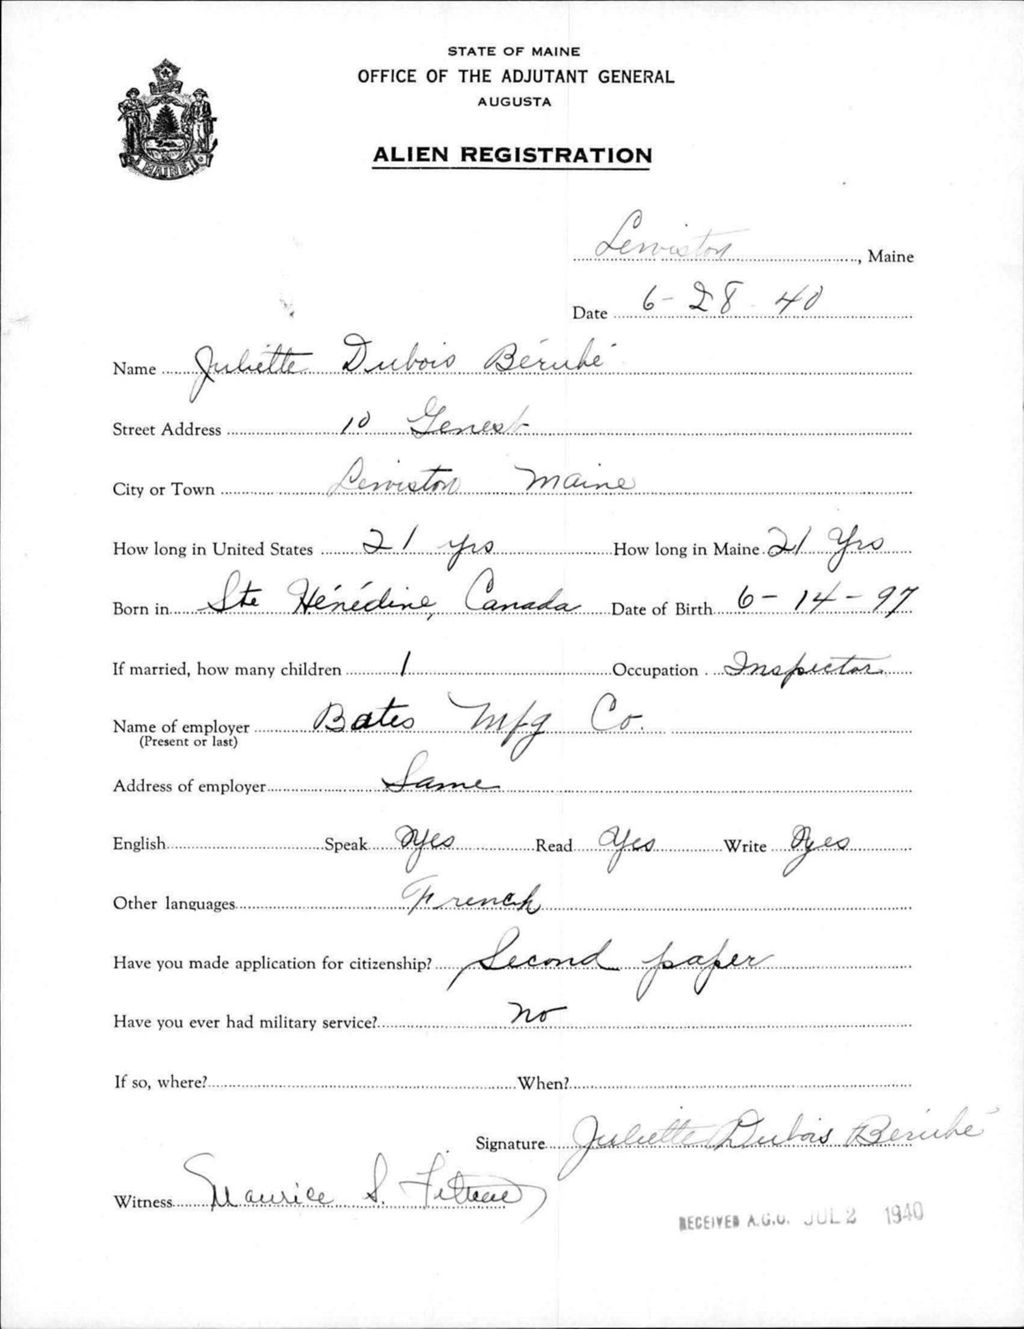 STATE OF MAINE
OFFICE OF THE ADJUTANT GENERAL
AUGUSTA
ALIEN REGISTRATION
MAINE
Lewiston, Maine
Date 6-28-40
Name Juliette Dubois Bérubé
Street Address 10 Genest
City or Town Lewiston Maine
How long in United States 21 yrs How long in Maine 21 Yrs
Born in Ste Hénédine, Canada Date of Birth 6-14-97
If married, how many children 1 Occupation Inspector
Name of employer Bates Mfg Co.
(Present or last)
Address of employer Same
English Speak Yes Read Yes Write Yes
Other languages French
Have you made application for citizenship? Second paper
Have you ever had military service? no
If so, where? When?
Signature Juliette Dubois Bérubé
Witness Maurice S.
RECEIVED A.G.O. JUL 2 1940